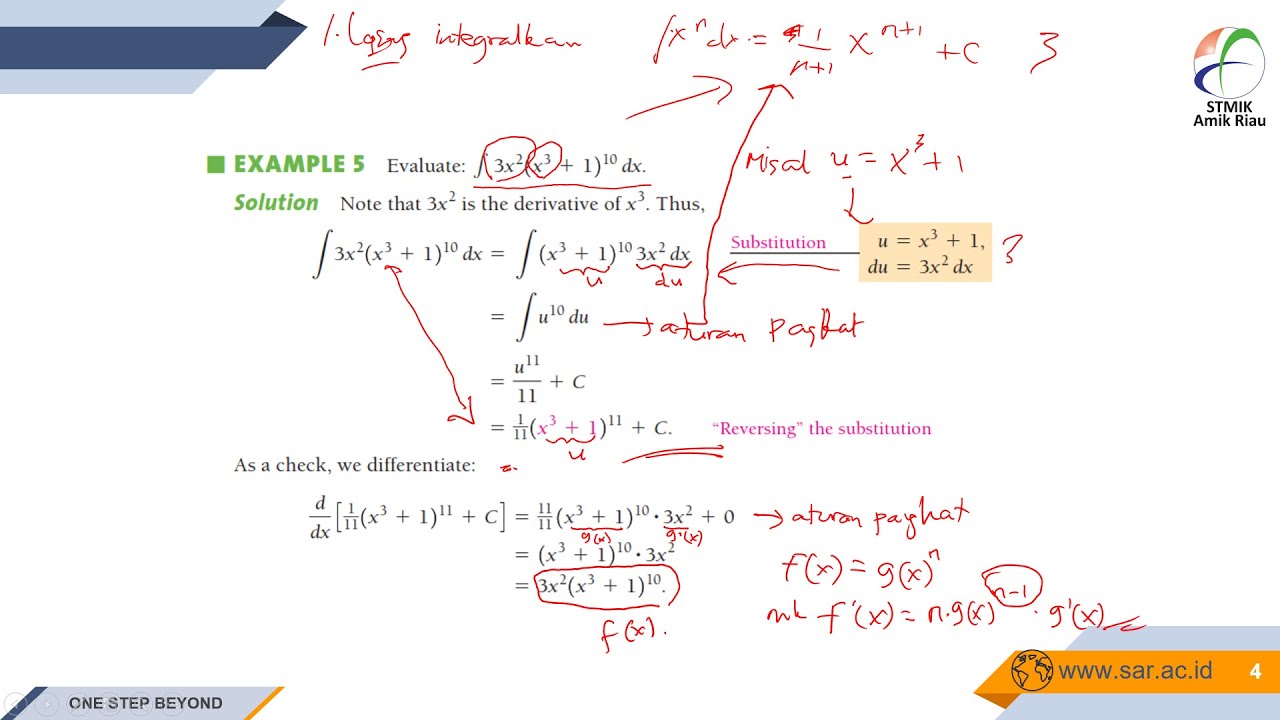 1. Lgsng integralkan ∫xⁿ dx = 1/n+1 x^(n+1) + C
STMIK
Amik Riau
EXAMPLE 5 Evaluate: ∫ 3x²(x³ + 1)¹⁰ dx.
misal u = x³ + 1
Solution Note that 3x² is the derivative of x³. Thus,
∫ 3x²(x³ + 1)¹⁰ dx = ∫ (x³ + 1)¹⁰ 3x² dx Substitution u = x³ + 1,
du = 3x² dx
u du
= ∫ u¹⁰ du → aturan pagkat
= u¹¹/11 + C
= 1/11(x³ + 1)¹¹ + C. “Reversing” the substitution
u
As a check, we differentiate: =
d/dx [1/11(x³ + 1)¹¹ + C] = 11/11(x³ + 1)¹⁰ · 3x² + 0 → aturan pagkat
g(x) g'(x)
= (x³ + 1)¹⁰ · 3x²
f(x) = g(x)ⁿ
= 3x²(x³ + 1)¹⁰.
mk f'(x) = n·g(x)ⁿ⁻¹ · g'(x)
f(x).
www.sar.ac.id 4
ONE STEP BEYOND